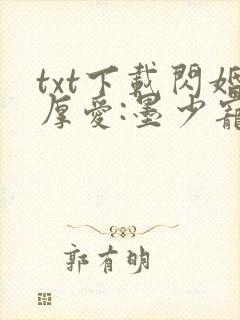 txt下載閃婚
厚愛:墨少寵
郭有明